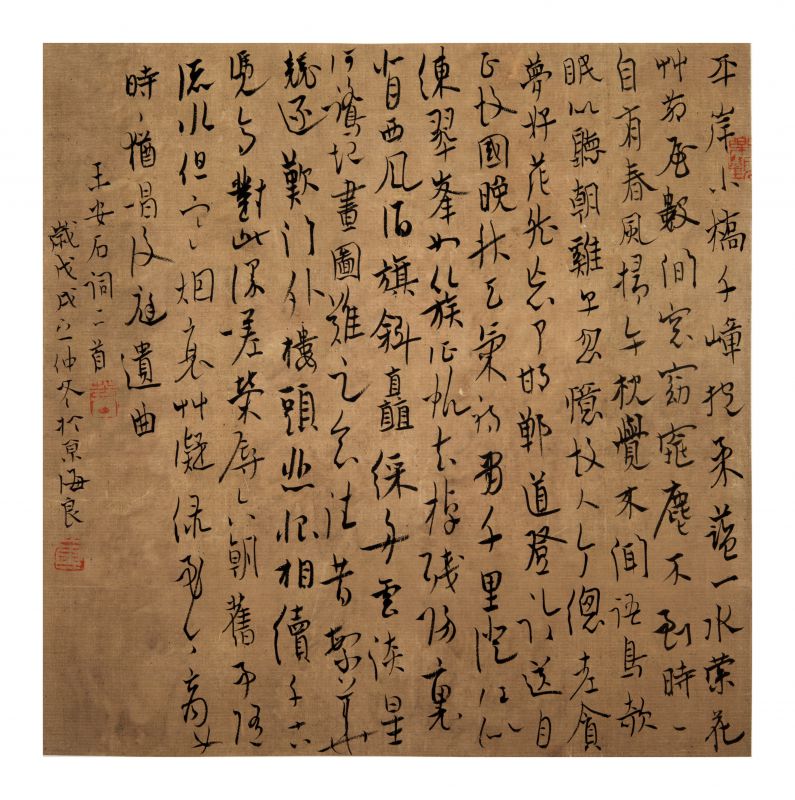 平岸小橋千嶂抱柔藍一水縈花
艸茅屋數間窓窈窕塵不到時〻
自有春風掃午枕覺来聞語鳥欹
眠似聽朝雞早忽憶故人今總老貪
夢好茫然忘了邯鄲道登臨送目
正故國晚秋天氣初肅千里澄江似
練翠峯如簇征帆去棹殘陽裏
背西風酒旗斜矗綵舟雲淡星
河鷺起畫圖難足念往昔繁華
競逐歎门外樓頭悲恨相續千古
凭高對此漫嗟榮辱六朝舊事隨
流水但寒烟衰艸凝綠至今商女
時〻猶唱後庭遺曲
王安石詞二首
歲戊戌之仲冬於京海良